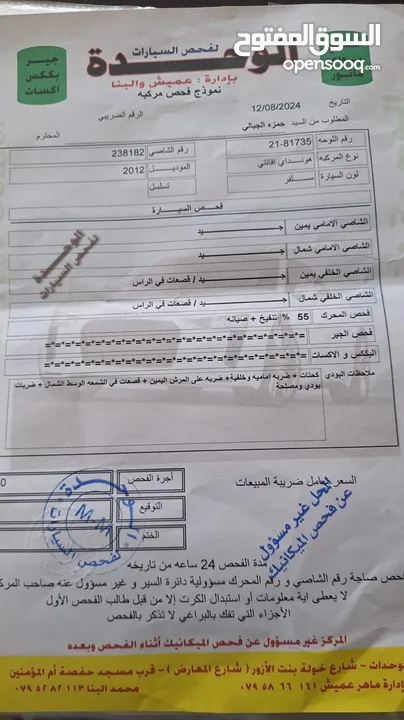 السوق المفتوح
opensooq.com
جبر
بككس
اكسات
لفحص السيارات
الوحدة
بإدارة : عميش والبنا
نموذج فحص مركبه
ماتور
التاريخ 12/08/2024 الرقم الضريبي
المطلوب من السيد حمزه الجبالي المحترم
رقم اللوحه 21-81735 رقم الشاصي 238182
نوع المركبه هونداي افانتي الموديل 2012
لون السيارة سلفر تسلسل
فحص السيارة
الشاصي الامامي يمين جيد
الشاصي الامامي شمال جيد
الشاصي الخلفي يمين جيد / قصعات في الراس
الشاصي الخلفي شمال جيد / قصعات في الراس
فحص المحرك 55 % تنفيخ + صيانه
فحص الجير =*=*=*=*=*=*=*=*=*=*=*=*=*=*=
البككس و الاكسات =*=*=*=*=*=*=*=*=*=*=*=*=*=*=
ملاحظات البودي كحتات + ضربه اماميه وخلفية+ ضربه على المرش اليمين + قصعات في الشمعه الوسط الشمال + ضربات بودي ومصلحة
الوحدة
لفحص السيارات
السعر شامل ضريبة المبيعات
أجرة الفحص
التوقيع
الختم
M.M
لفحص السيارات
المحل غير مسؤول
عن فحص الميكانيك
مدة الفحص 24 ساعه من تاريخه
فحص صاجة رقم الشاصي و رقم المحرك مسؤولية دائرة السير و غير مسؤول عنه صاحب المركز
لا يعطى اية معلومات أو استبدال الكرت إلا من قبل طالب الفحص الأول
الأجزاء التي تفك بالبراغي لا تذكر بالفحص
المركز غير مسؤول عن فحص الميكانيك أثناء الفحص وبعده
الوحدات - شارع خولة بنت الأزور ( شارع المعارض ) - قرب مسجد حفصة أم المؤمنين
بإدارة ماهر عميش ٠٧٩ ٥٨ ٦٦ ١٦١ محمد البنا ٠٧٩ ٥٢ ٨٢ ١١٣